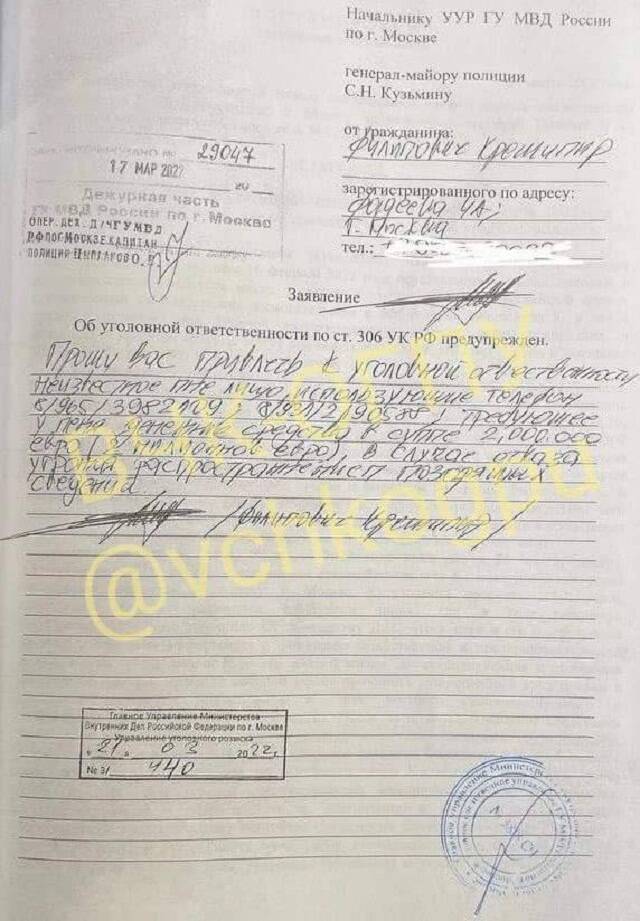 Начальнику УУР ГУ МВД России
по г. Москве
генерал-майору полиции
С.Н. Кузьмину
от гражданина:
Филипович Крешимир
зарегистрированного по адресу:
Фадеева 4А,
г. Москва
тел.:
29047
17 МАР 2022
20
Дежурная часть
ГУ МВД России по г. Москве
ОПЕР. ДЕЖ. Д/Ч ГУ МВД
РФ ПО Г. МОСКВЕ КАПИТАН
ПОЛИЦИИ
Заявление
Об уголовной ответственности по ст. 306 УК РФ предупрежден.
Прошу вас привлечь к уголовной ответственности
неизвестное мне лицо, использующие телефон
требующее
у меня денежные средства в сумме 2,000.000
евро (2 миллионов евро), в случае отказа
угрожая распространением позорящих
сведений
Филипович Крешимир
ВЧК-ОГПУ
@vchkogpu
Главное Управление Министерства
Внутренних Дел Российской Федерации по г. Москве
Управление уголовного розыска
« 21 » 03 2022 г.
№ 3/ 440